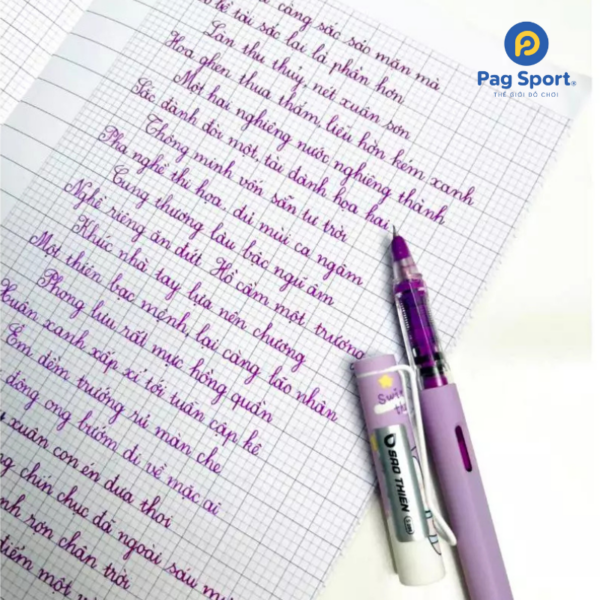 càng sắc sảo mặn mà
bề tài sắc lại là phần hơn
Làn thu thủy, nét xuân sơn
Hoa ghen thua thắm, liễu hờn kém xanh
Một hai nghiêng nước nghiêng thành
Sắc đành đòi một, tài đành họa hai
Thông minh vốn sẵn tư trời
Pha nghề thi họa, đủ mùi ca ngâm
Cung thương lầu bậc ngũ âm
Nghề riêng ăn đứt Hồ cầm một trương
Khúc nhà tay lựa nên chương
Một thiên bạc mệnh, lại càng não nhân
Phong lưu rất mực hồng quần
Xuân xanh xấp xỉ tới tuần cập kê
Êm đềm trướng rủ màn che
đông ong bướm đi về mặc ai
xuân con én đưa thoi
chín chục đã ngoài sáu mươi
rợn chân trời
điểm một
Pag Sport®
THẾ GIỚI ĐỒ CHƠI
SAO THIEN